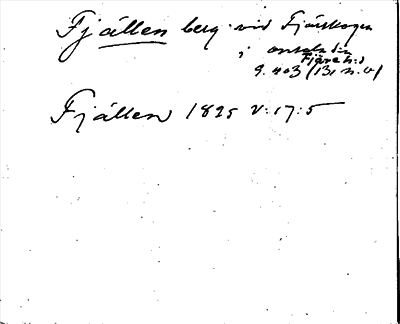 Fjällen berg vid Fjärskogen
i Onsala sn
Fjäre h:d
g. 403 (131 n.v)
Fjällen 1825 V:17:5